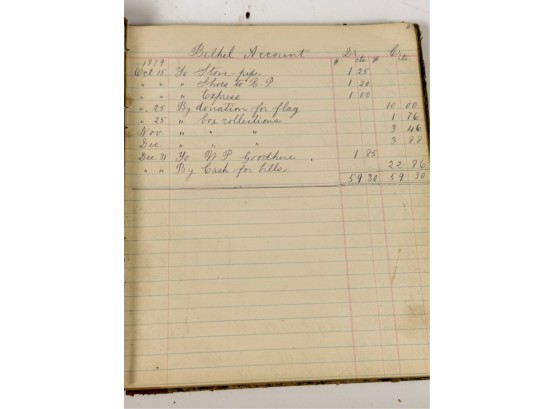 Bethel Account Dr Cr
$ cts $ cts
1879
Oct 15 To Stove pipe 1 25
" " " Shoes to E. P. 1 20
" " " Express 1 00
" 25 By donation for flag 10 00
" 25 " box collections 1 76
Nov " " " 3 46
Dec " " " 3 88
Dec 31 To W P Goodhue 1 85
" " By Cash for bills 22 86
59 30 59 30